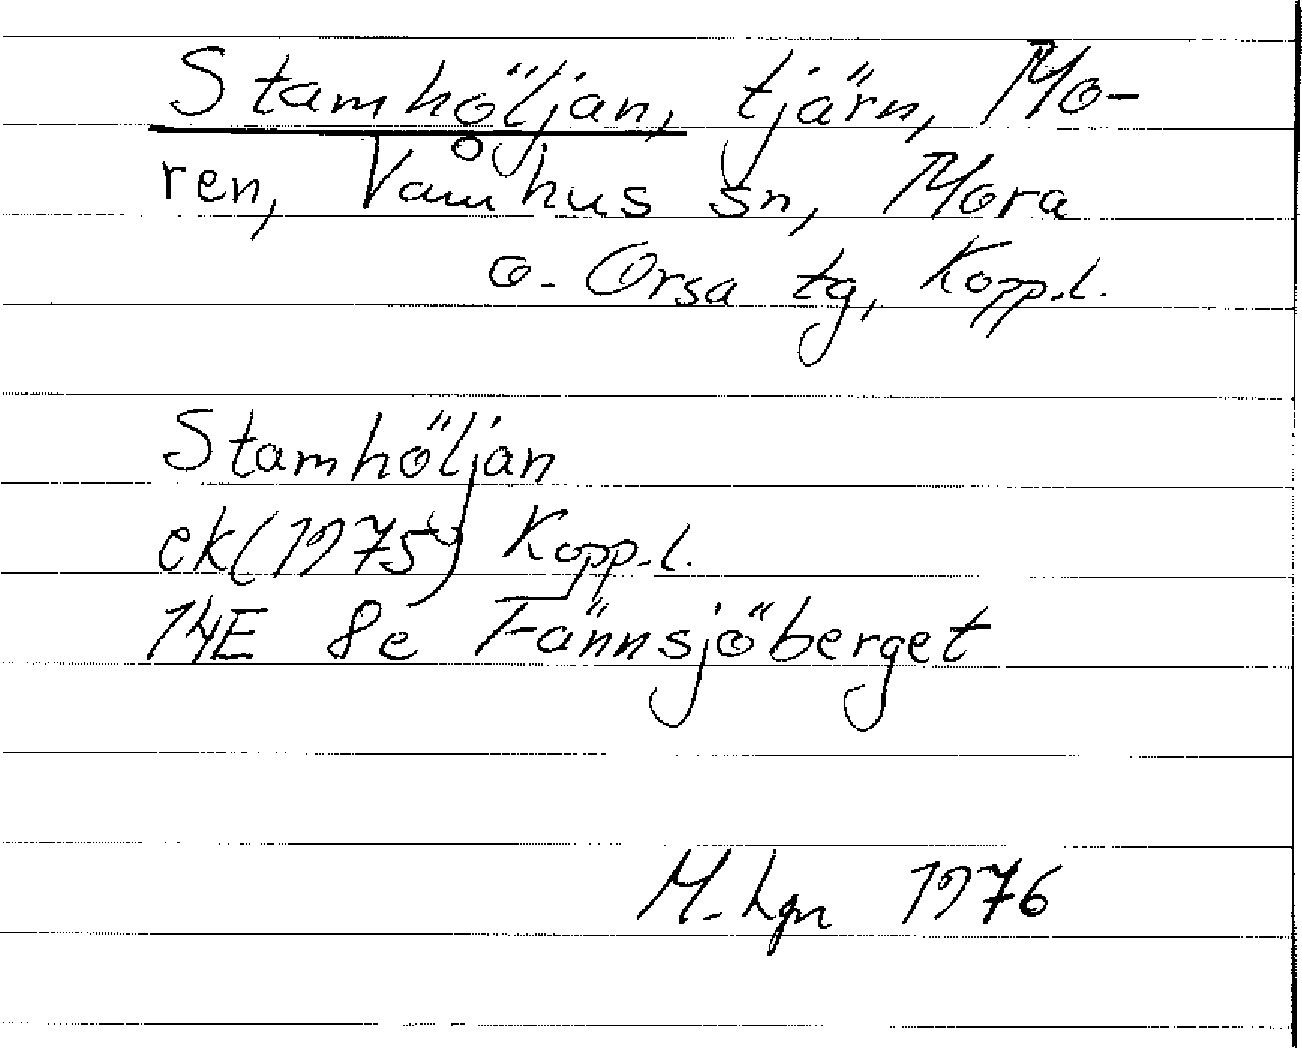 Stamhöljan, tjärn, Mo-
ren, Våmhus sn, Mora
o. Orsa tg, Kopp.l.
Stamhöljan
ek (1975) Kopp.l.
14E 8e Fännsjöberget
M. Lgn 1976